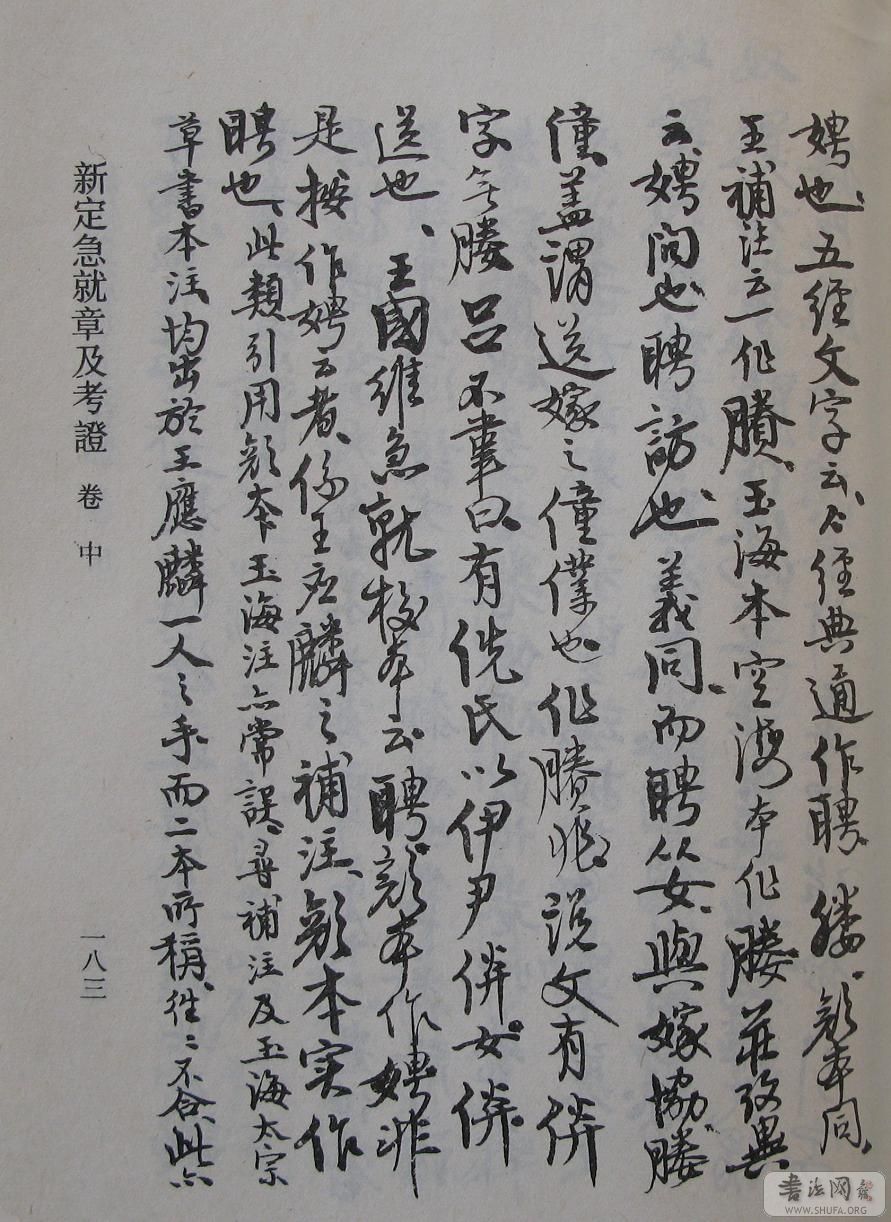 娉也、五經文字云、今經典通作聘。媵、顏本同、
王補注云、一作賸、玉海本空海本作媵、莊攷異
云、娉、問也、聘、訪也、義同、而聘从女、與嫁協、媵
僮、蓋謂送嫁之僮僕也、作賸非、說文有㑞
字無媵、呂不韋曰、有侁氏以伊尹㑞女。㑞、
送也、王國維急就校本云、聘、顏本作娉、非
是、按作娉云者、係王應麟之補注、顏本實作
聘也、此類引用顏本玉海注亦常誤、尋補注及玉海太宗
草書本注、均出於王應麟一人之手、而二本所稱、往往不合、此亦
新定急就章及考證 卷中
一八三
書法网
WWW.SHUFA.ORG